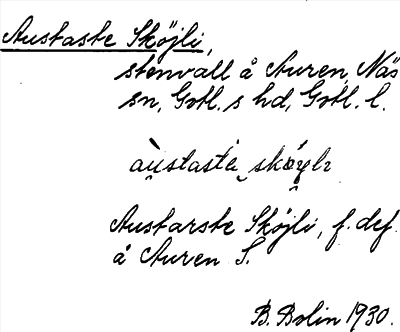 Austaste Sköjli,
stenvall å Auren, Näs
sn, Gotl. s hd, Gotl. l.
au̯stastė sköyli
Austarste Sköjli, f. def.
å Auren S.
B. Bolin 1930.